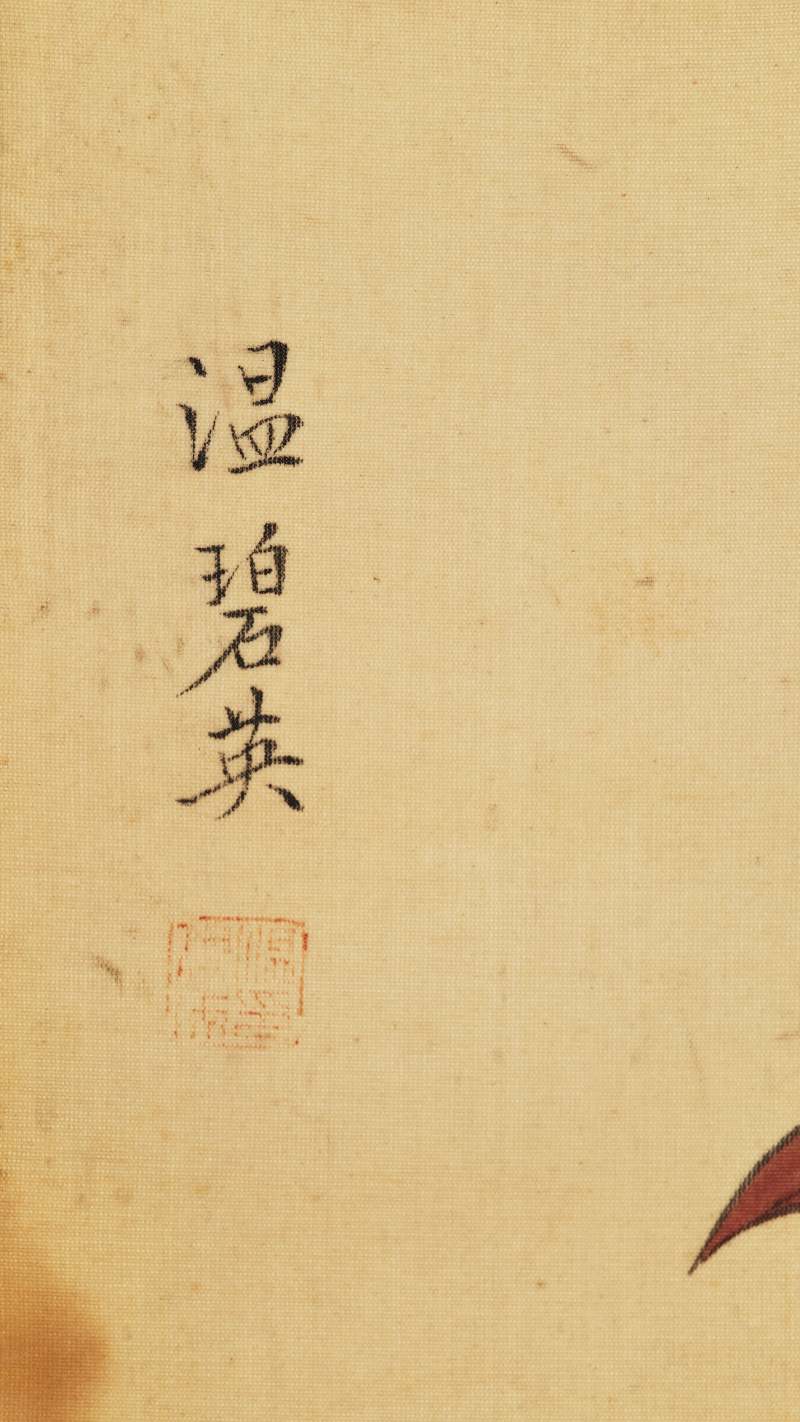 温碧英